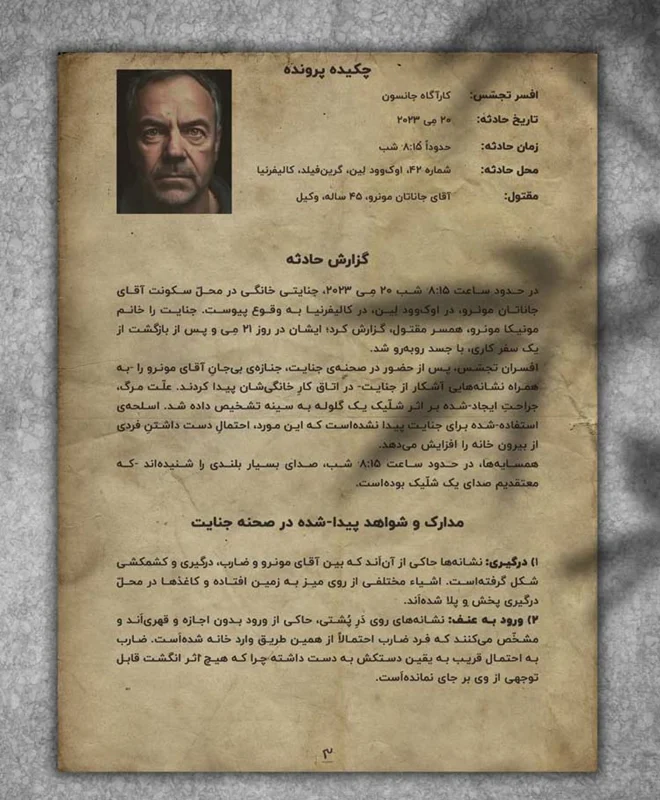 چکیده پرونده
افسر تجسّس: کارآگاه جانسون
تاریخ حادثه: ۲۰ مِی ۲۰۲۳
زمان حادثه: حدوداً ۸:۱۵ شب
محل حادثه: شماره ۴۲، اوک‌وود لِین، گرین‌فیلد، کالیفرنیا
مقتول: آقای جاناتان مونرو، ۴۵ ساله، وکیل
گزارش حادثه
در حـدود سـاعت ۸:۱۵ شـب ۲۰ مِـی ۲۰۲۳، جنایتـی خانگـی در محـلّ سـکونت آقـای
جاناتـان مونـرو، در اوک‌وود لِیـن، در کالیفرنیـا بـه وقـوع پیوسـت. جنایت را خانـم
مونیـکا مونـرو، همسـر مقتـول، گزارش کـرد؛ ایشان در روز ۲۱ مِی و پـس از بازگشت از
یک سفر کاری، با جسد روبه‌رو شد.
افسـران تجسّـس، پـس از حضـور در صحنه‌ی جنایت، جنازه‌ی بی‌جانِ آقای مونرو را -به
همـراه نشانه‌هایی آشـکار از جنایت- در اتاق کارِ خانگی‌شان پیـدا کردنـد. علّـت مـرگ،
جراحتِ ایجاد-شـده بـر اثـر شلّیـک یـک گلولـه به سـینه تشـخیص داده شـد. اسـلحه‌ی
استفاده-شـده بـرای جنایـت پیـدا نشده‌اسـت کـه ایـن مـورد، احتمـالِ دسـت داشـتنِ فردی
از بیرون خانه را افزایش می‌دهد.
همسـایه‌ها، در حـدود سـاعت ۸:۱۵ شـب، صـدای بسـیار بلنـدی را شـنیده‌اند -کـه
معتقدیم صدای یک شلّیک بوده‌است.
مدارک و شواهد پیدا-شده در صحنه جنایت
۱) درگیری: نشانه‌ها حاکی از آن‌اَند که بین آقای مونرو و ضارب، درگیری و کشمکشی
شـکل گرفته‌اسـت. اشـیاء مختلفـی از روی میـز بـه زمیـن افتـاده و کاغذهـا در محـلّ
درگیری پخش و پلا شده‌اَند.
۲) ورود به عنف: نشانه‌های روی دَرِ پُشـتی، حاکی از ورود بدون اجازه و قهری‌اَند و
مشـخّص می‌کننـد کـه فـرد ضارب احتمـالاً از همیـن طریـق وارد خانه شده‌اَسـت. ضارب
به احتمـال قریـب به یقیـن دسـتکش به دسـت داشـته چـرا که هیـچ اثـر انگشـت قابل
توجهی از وی بر جای نمانده‌اَست.
۲